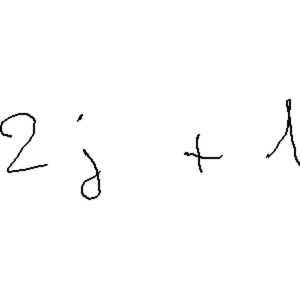 2j + 1